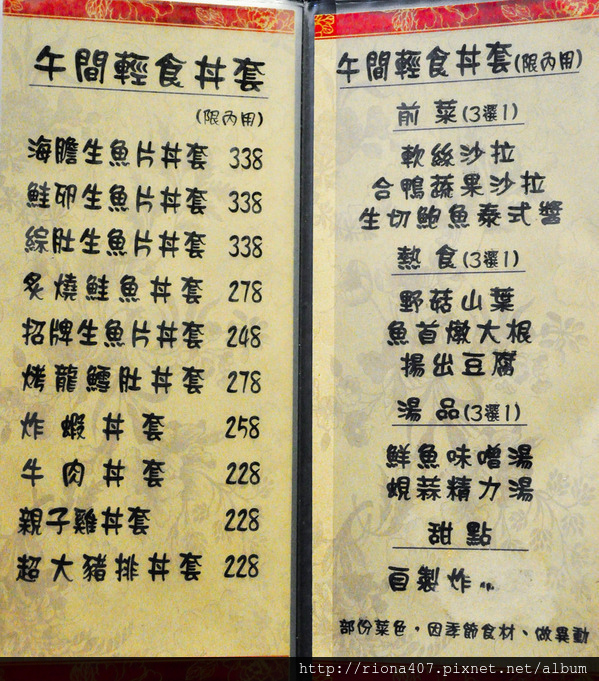 午間輕食丼套
(限內用)
海膽生魚片丼套 338
鮭卵生魚片丼套 338
綜肚生魚片丼套 338
炙燒鮭魚丼套 278
招牌生魚片丼套 248
烤龍鱈肚丼套 278
炸蝦丼套 258
牛肉丼套 228
親子雞丼套 228
超大豬排丼套 228
午間輕食丼套(限內用)
前菜(3選1)
軟絲沙拉
合鴨蔬果沙拉
生切鮑魚泰式醬
熱食(3選1)
野菇山葉
魚首燉大根
揚出豆腐
湯品(3選1)
鮮魚味噌湯
蜆蒜精力湯
甜點
製炸
部份菜色,因季節食材、做異動
http://riona407.pixnet.net/album